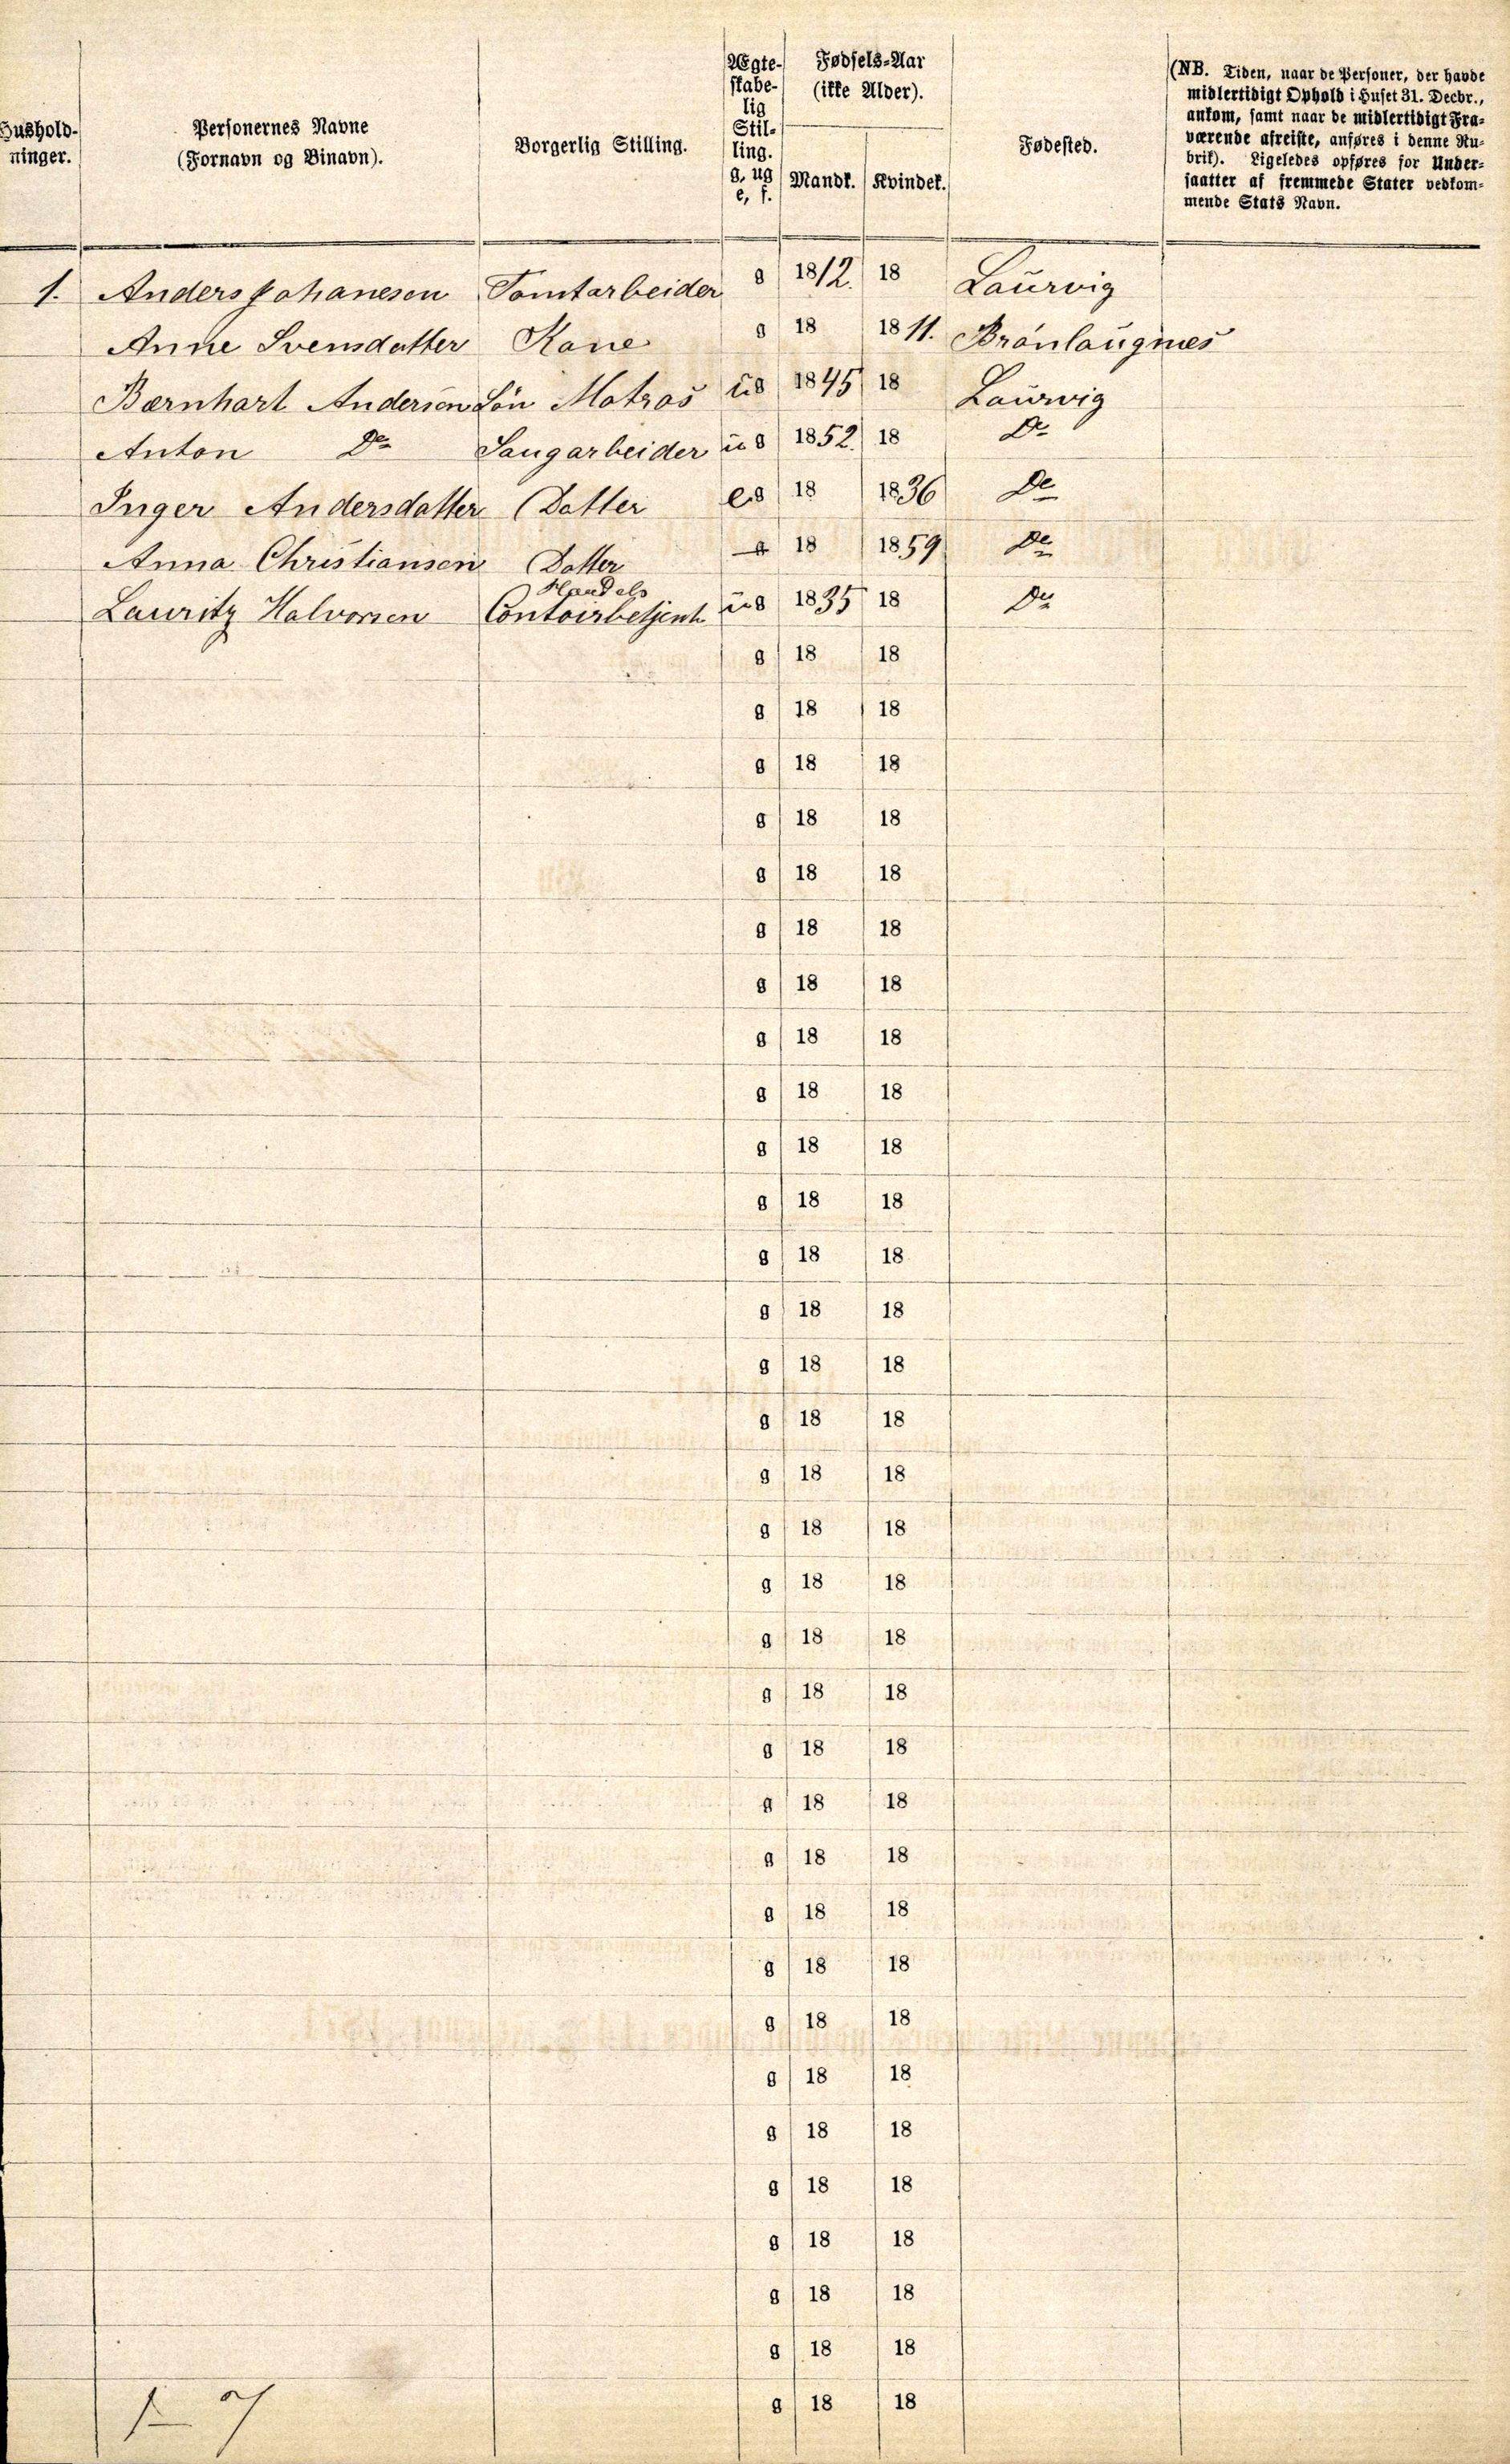 Hushold-
ninger.
Personernes Navne
(Fornavn og Binavn).
Borgerlig Stilling.
Ægte-
skabe-
lig
Stil-
ling.
g, ug
e, f.
Fødsels-Aar
(ikke Alder).
Mandk. Kvindek.
Fødested.
(NB. Tiden, naar de Personer, der havde
midlertidigt Ophold i Huset 31. Decbr.,
ankom, samt naar de midlertidigt Fra-
værende afreiste, anføres i denne Ru-
brik). Ligeledes opføres for Under-
saatter af fremmede Stater vedkom-
mende Stats Navn.
1. Anders Johanesen Tomtarbeider g 1812. 18 Laurvig
Anne Svensdatter Kone g 18 1811. Brønlaugnæs
Bærnhart Andersen Søn Matros ug 1845 18 Laurvig
Anton Do Saugarbeider ug 1852. 18 Do
Inger Andersdatter Datter eg 18 1836 Do
Anna Christiansen Datter g 18 1859 Do
Handels
Lauritz Halvorsen Contoirbetjent ug 1835 18 Do
g 18 18
g 18 18
g 18 18
g 18 18
g 18 18
g 18 18
g 18 18
g 18 18
g 18 18
g 18 18
g 18 18
g 18 18
g 18 18
g 18 18
g 18 18
g 18 18
g 18 18
g 18 18
g 18 18
g 18 18
g 18 18
g 18 18
g 18 18
g 18 18
g 18 18
g 18 18
g 18 18
g 18 18
g 18 18
g 18 18
g 18 18
g 18 18
g 18 18
1 – 7